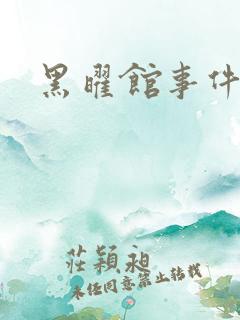 黑曜館事件
莊穎昶
未經同意禁止轉載